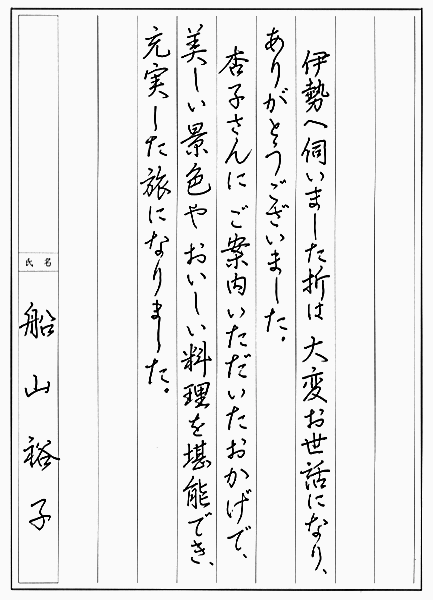 伊勢へ伺いました折は大変お世話になり、
ありがとうございました。
杏子さんにご案内いただいたおかげで、
美しい景色やおいしい料理を堪能でき、
充実した旅になりました。
氏名
船山裕子